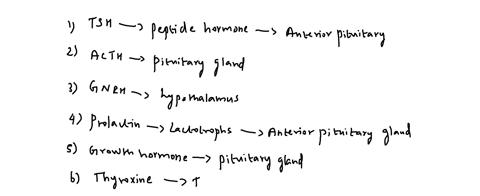 1) TSH -> peptide hormone -> Anterior pituitary
2) ACTH -> pituitary gland
3) GNRH -> hypothalamus
4) Prolactin -> Lactotrophs -> Anterior pituitary gland
5) Growth hormone -> pituitary gland
6) Thyroxine -> T